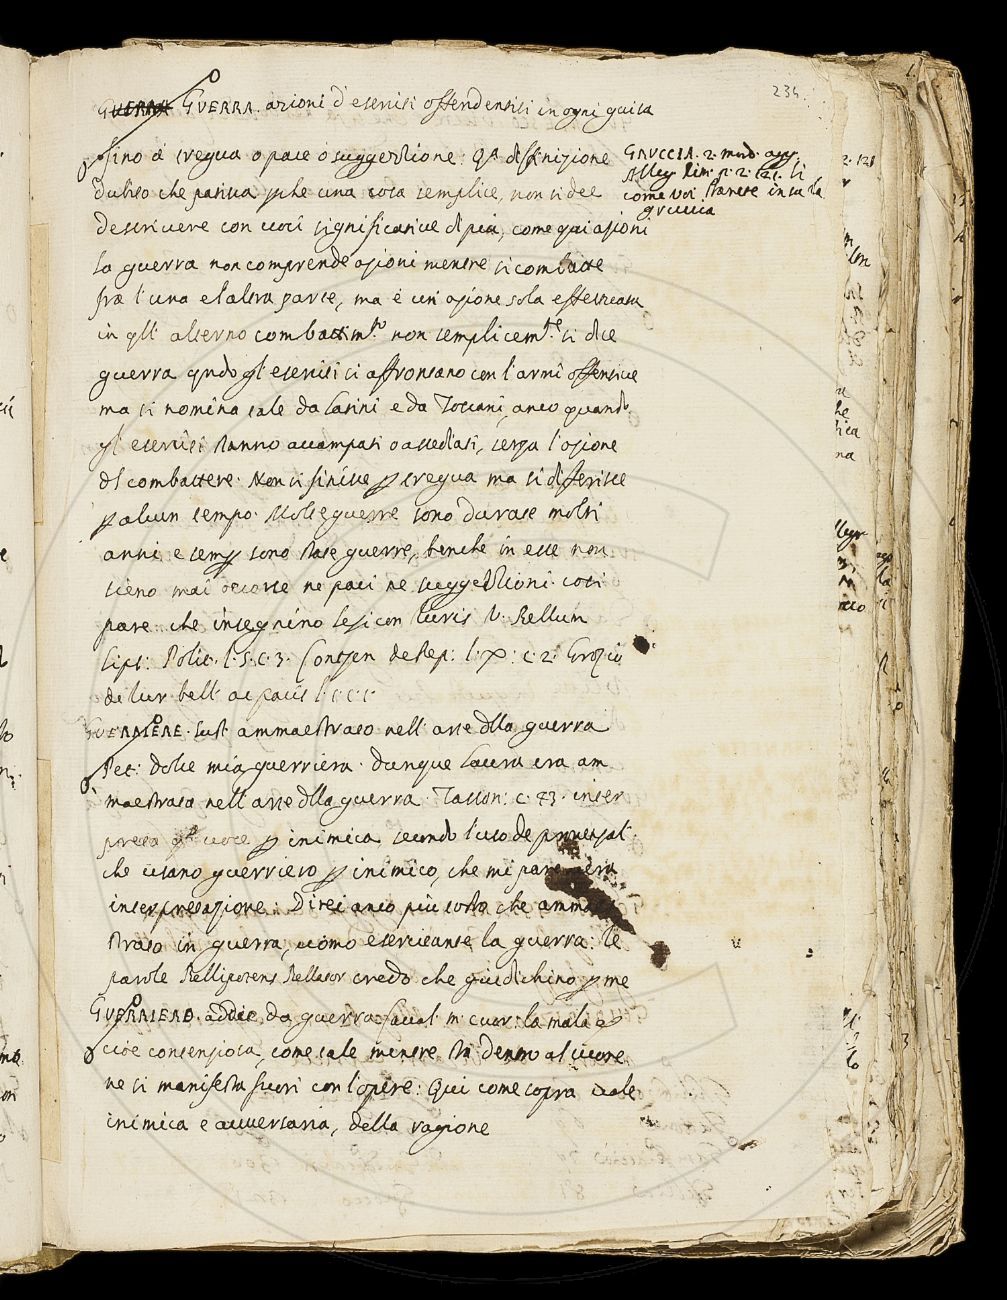 234
GUERRA GUERRA. azioni d'eserciti offendentisi in ogni guisa
sino à tregua o pace ò suggestione: qta diffinizione
dubito che patisca pche una cosa semplice, non si dee
descrivere con voci significative di più, come qui azioni
la guerra non comprende azioni mentre si combatte
fra l'una e l'altra parte, ma è un'azione sola effettuata
in qll' alterno combattimto non semplicemte si dice
guerra qndo gl'eserciti si affrontano con l'armi offensive
ma si nomina tale da Latini e da Toscani, anco quando
gl'eserciti stanno accampati o assediati, senza l'azione
dl combattere. Non si finisce p tregua ma si differisce
p alcun tempo. Molte guerre sono durate molti
anni e semp sono state guerre, benche in esse non
sieno mai occorse ne paci ne suggestioni. così
pare che insegnino Lesicon Iuris V. Bellum
Lips: Polit. l. 5. c. 3. Contzen de Rep: l. X: c. 2. Grozio
de Iur. bell. ac pacis l. 1. c. 1.
GUERRIERE. sust ammaestrato nell'arte dlla guerra
Pet: Dolce mia guerriera. dunque Laura era am
maestrata nell'arte dlla guerra. Tasson: c. 73. inter
preta qta voce p inimica secondo l'uso de provenzal.
che usano guerriero p inimico, che mi par vera
interpretazione: Direi anco più tosto che ammae
strato in guerra, uomo esercitante la guerra: le
parole Bellipotens Bellator credo che giudichino p me
GUERRIERO. addie. da guerra: Caval. m. cuor: la mala
cioè consenziosa, come tale mentre sta dentro al cuore
ne si manifesta fuori con l'opere: Qui come sopra vale
inimica e avversaria, della ragione
GRUCCIA. 2. mod. agg.
Alleg. rim. p. 2. 121. Si
come voi starete in su la
gruccia